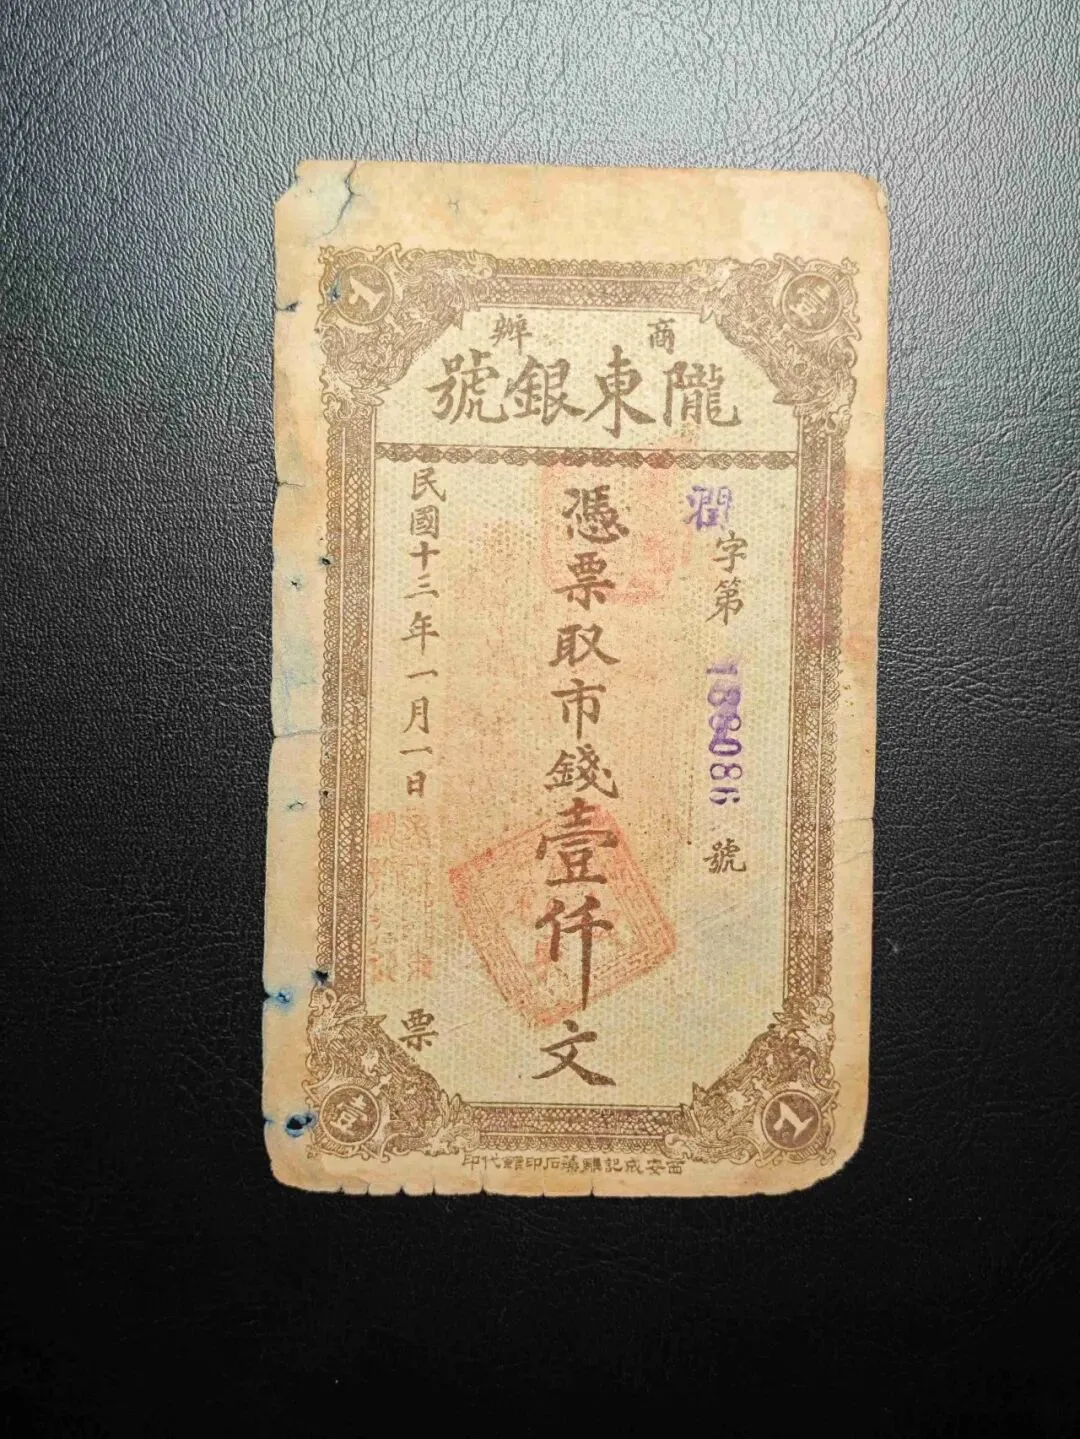 商辦
隴東銀號
潤字第188086號
憑票取市錢壹仟文
民國十三年一月一日
票
壹
壹
西安成記石印館代印